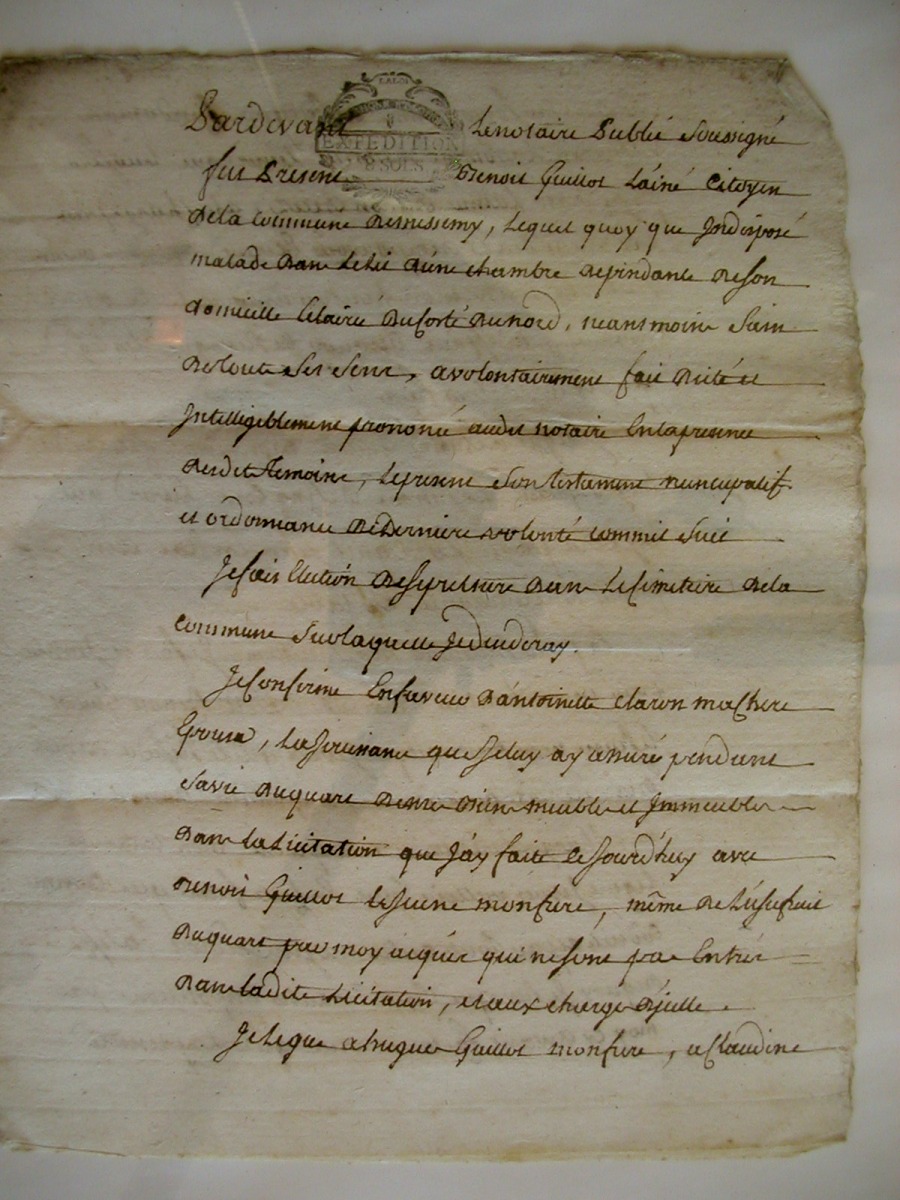 LA LOI
EXPEDITION
8 SOLS
Pardevant Le notaire Public Soussigné
fut Present Benoit Guillot L'ainé Citoyen
De la Commune De , Lequel quoy que Indisposé
malade Dans Le Lit d'une chambre dépendante De Son
domicille Eclairée Du Corté Du nord, neansmoins Sain
De toute Ses Sens, a volontairement fait Dicté et
Intelligiblement prononcé audit notaire En la presence
Desdits Temoins, Le present Son testament nuncupatif
et ordonnance De Derniere volonté comme Suit
Je fais Election De Sepulture Dans Le Cimetiere De la
Commune Sur laquelle Je Decederay.
Je Confirme En faveur D'antoinette Claron ma Chere
Epouse, La Jouissance que Je luy ay assuré pendant
Sa vie Du quart De mes Biens meubles et Immeubles
Dans La Licitation que J'ay faite Ce Jourd'huy avec
Benoit Guillot Le Jeune mon frere, même De L'usufruit
Du quart par moy acquis qui ne Sont pas Entrés
Dans ladite Licitation, et aux charges D'icelle.
Je Legue a hugues Guillot mon frere, a Claudine